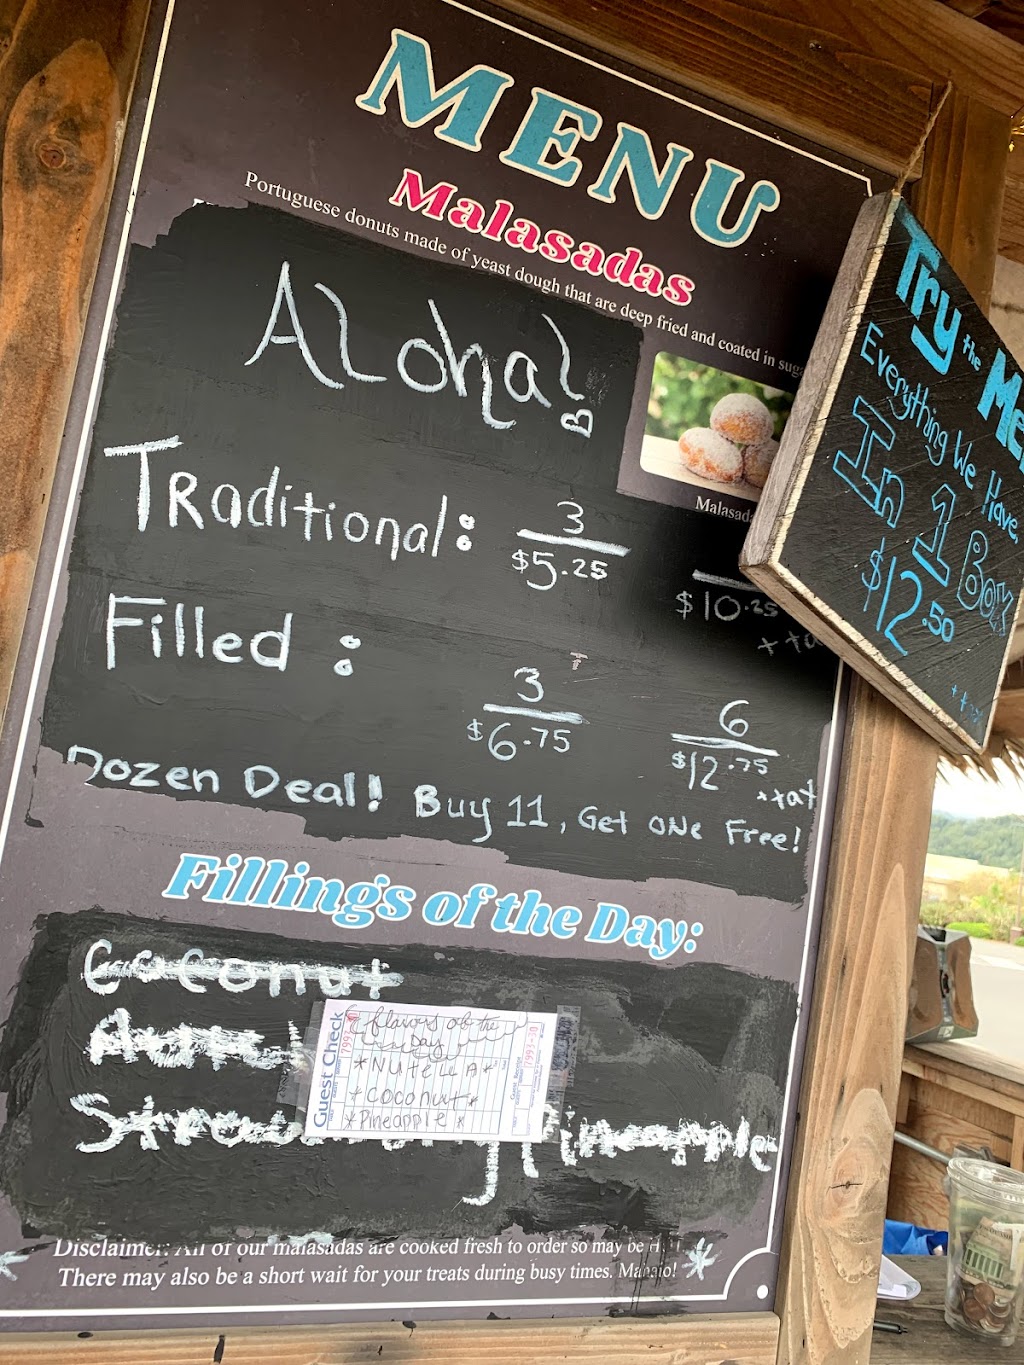 MENU
Malasadas
Portuguese donuts made of yeast dough that are deep fried and coated in
Aloha!
Malasada
Traditional: 3 $5.25 $10.25
+ ta
Filled: 3 $6.75 6 $12.75
+ tax
Dozen Deal! Buy 11, Get one Free!
Fillings of the Day:
Coconut
Pineapple
Guest Check
flavors of the
Day
*Nutella*
*Coconut*
*Pineapple*
Disclaimer: All of our malasadas are cooked fresh to order so may be
There may also be a short wait for your treats during busy times. Mahalo!
Try the
Everything We Have
In 1 Box
$12.50
+ tax